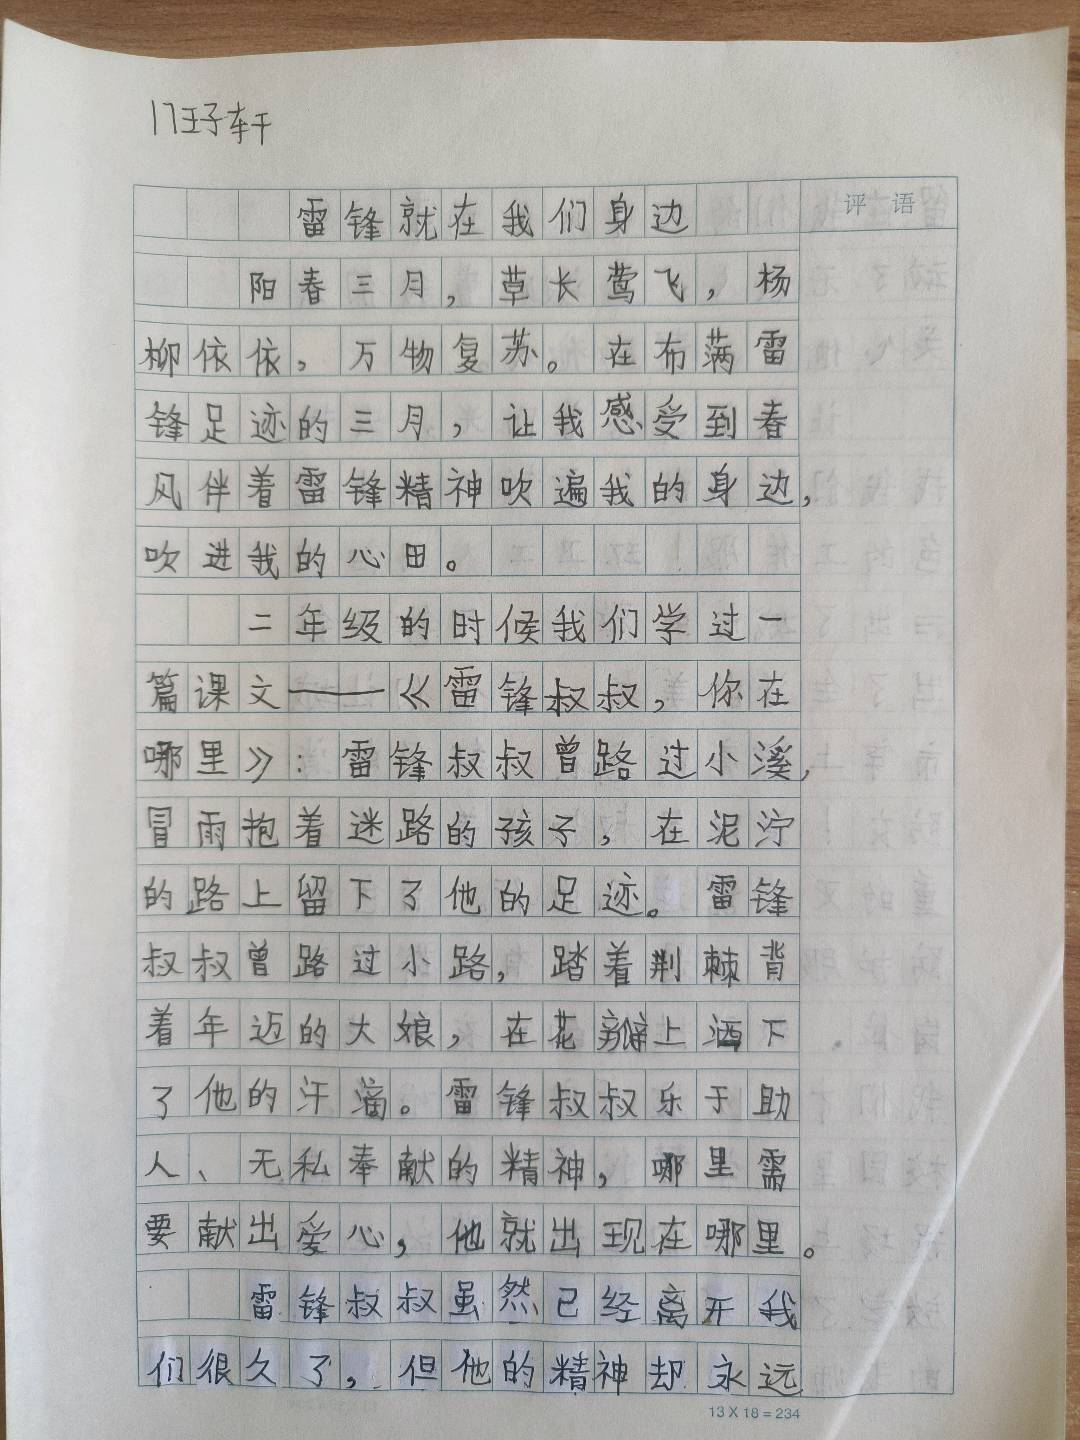 17王子轩
评语
雷锋就在我们身边
阳春三月，草长莺飞，杨
柳依依，万物复苏。在布满雷
锋足迹的三月，让我感受到春
风伴着雷锋精神吹遍我的身边，
吹进我的心田。
二年级的时候我们学过一
篇课文——《雷锋叔叔，你在
哪里》：雷锋叔叔曾路过小溪，
冒雨抱着迷路的孩子，在泥泞
的路上留下了他的足迹。雷锋
叔叔曾路过小路，踏着荆棘背
着年迈的大娘，在花瓣上洒下
了他的汗滴。雷锋叔叔乐于助
人、无私奉献的精神，哪里需
要献出爱心，他就出现在哪里。
雷锋叔叔虽然已经离开我
们很久了，但他的精神却永远
13 X 18 = 234